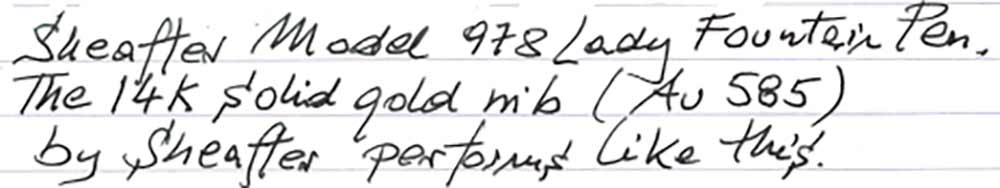 Sheaffer Model 978 Lady Fountain Pen.
The 14K solid gold nib (Au 585)
by Sheaffer performs like this.